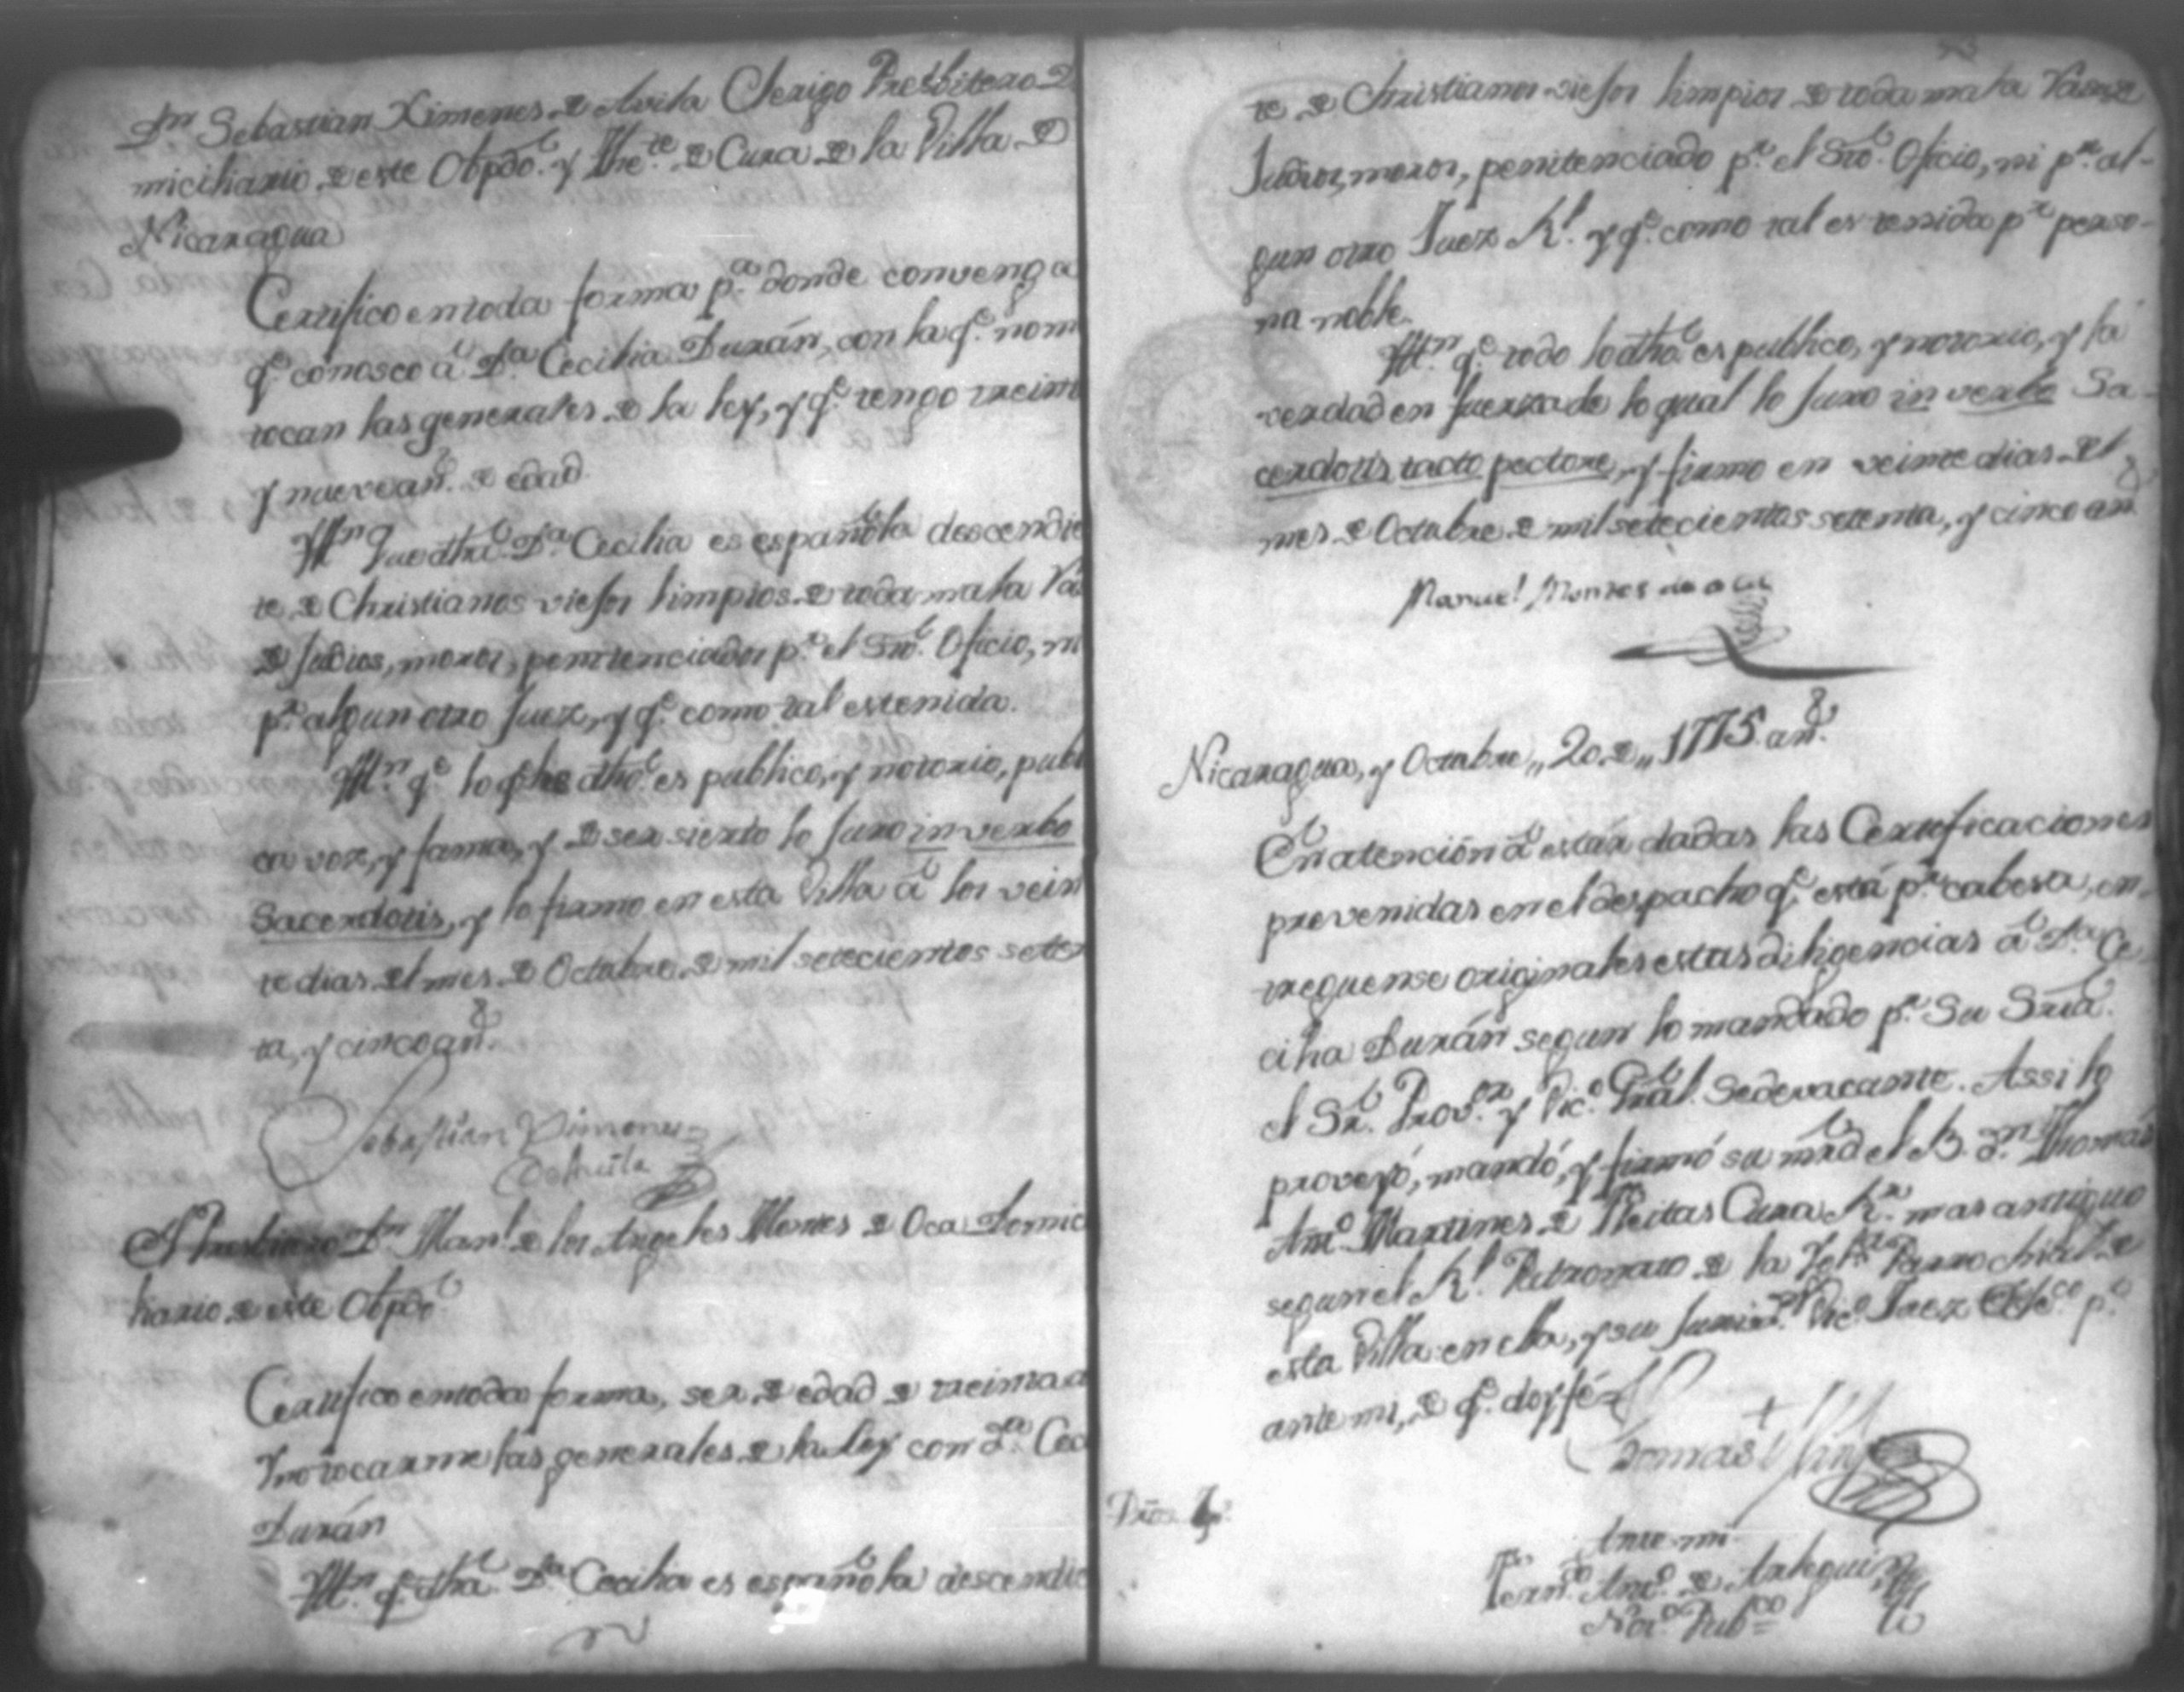 Dn Sebastian Ximenes de Avila Clerigo Presbitero D
miciliario de este Obpdo. y Thete. de Cura de la Villa de
Nicaragua
Certifico en toda forma pa. donde convenga
qe. conosco â Da. Cecilia Durán, con la qe. no m
tocan las generales de la ley, y qe. tengo treint
y nueve añs. de edad.
Ittn Que dha. Da. Cecilia es española descendie
te de Christianos viejos limpios de toda mala Ra
de Judios, moros, penitenciados pr. el Sto. Oficio, ni
pr. algun otro Juez, y qe. como tal es tenida.
Ittn. qe. lo qe. he dho. es publico, y notorio, publi
ca voz, y fama, y de ser sierto lo Juro in verbo
Sacerdotis, y lo firmo en esta Villa â los vein
te dias del mes de Octubre de mil setecientos seten
ta, y cinco añs.
Sebastian Ximenes
de Avila
El Presbitero Dn. Manl. de los Angeles Montes de Oca Domici
liario de este Obpdo.
Certifico en toda forma, ser de edad de treinta a
Y no tocarme las generales de la Ley con Da. Ceci
Durán
Ittn. qe. dha. Da. Cecilia es española descendie
te de Christianos viejos limpios de toda mala Raza de
Judios, moros, penitenciado pr. el Sto. Oficio, ni pr. al-
gun otro Juez Rl. y qe. como tal es tenida pr. perso-
na noble.
Ittn. qe. todo lo dho. es publico, y notorio, y la
verdad en fuerza de lo qual lo Juro in verbo Sa-
cerdotis tacto pectore, y firmo en veinte dias del
mes de Octubre de mil setecientos setenta, y cinco añs.
Manuel Montes de Oca
Nicaragua, y Octubre,, 20. de,, 1775. añs.
En atencion â están dadas las Certificaciones
prevenidas en el despacho qe. está pr. cabesa, en-
treguense originales estas diligencias â Da. Ce-
cilia Durán segun lo mandado pr. Su Sria.
el Sr. Provor. y Vico. Gral. Sedevacante. Assi lo
proveyó, mandó, y firmó su mrd. el B. Dn. Thomás
Anto. Martines de Fleitas Cura Rr. mas antiguo
segun el Rl. Patronato de la Yglª. Parrochial de
esta Villa en ella, y su Jurisdn. Vico. Juez Ecco. pr.
ante mi, de qe. doy fé
Tomas
Dros.
Ante mi
Ferndo. Anto. de Arlegui
Noto. Pubco